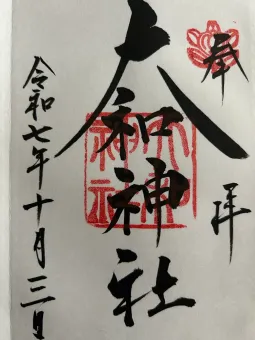 奉拝
大和神社
令和七年十月三日